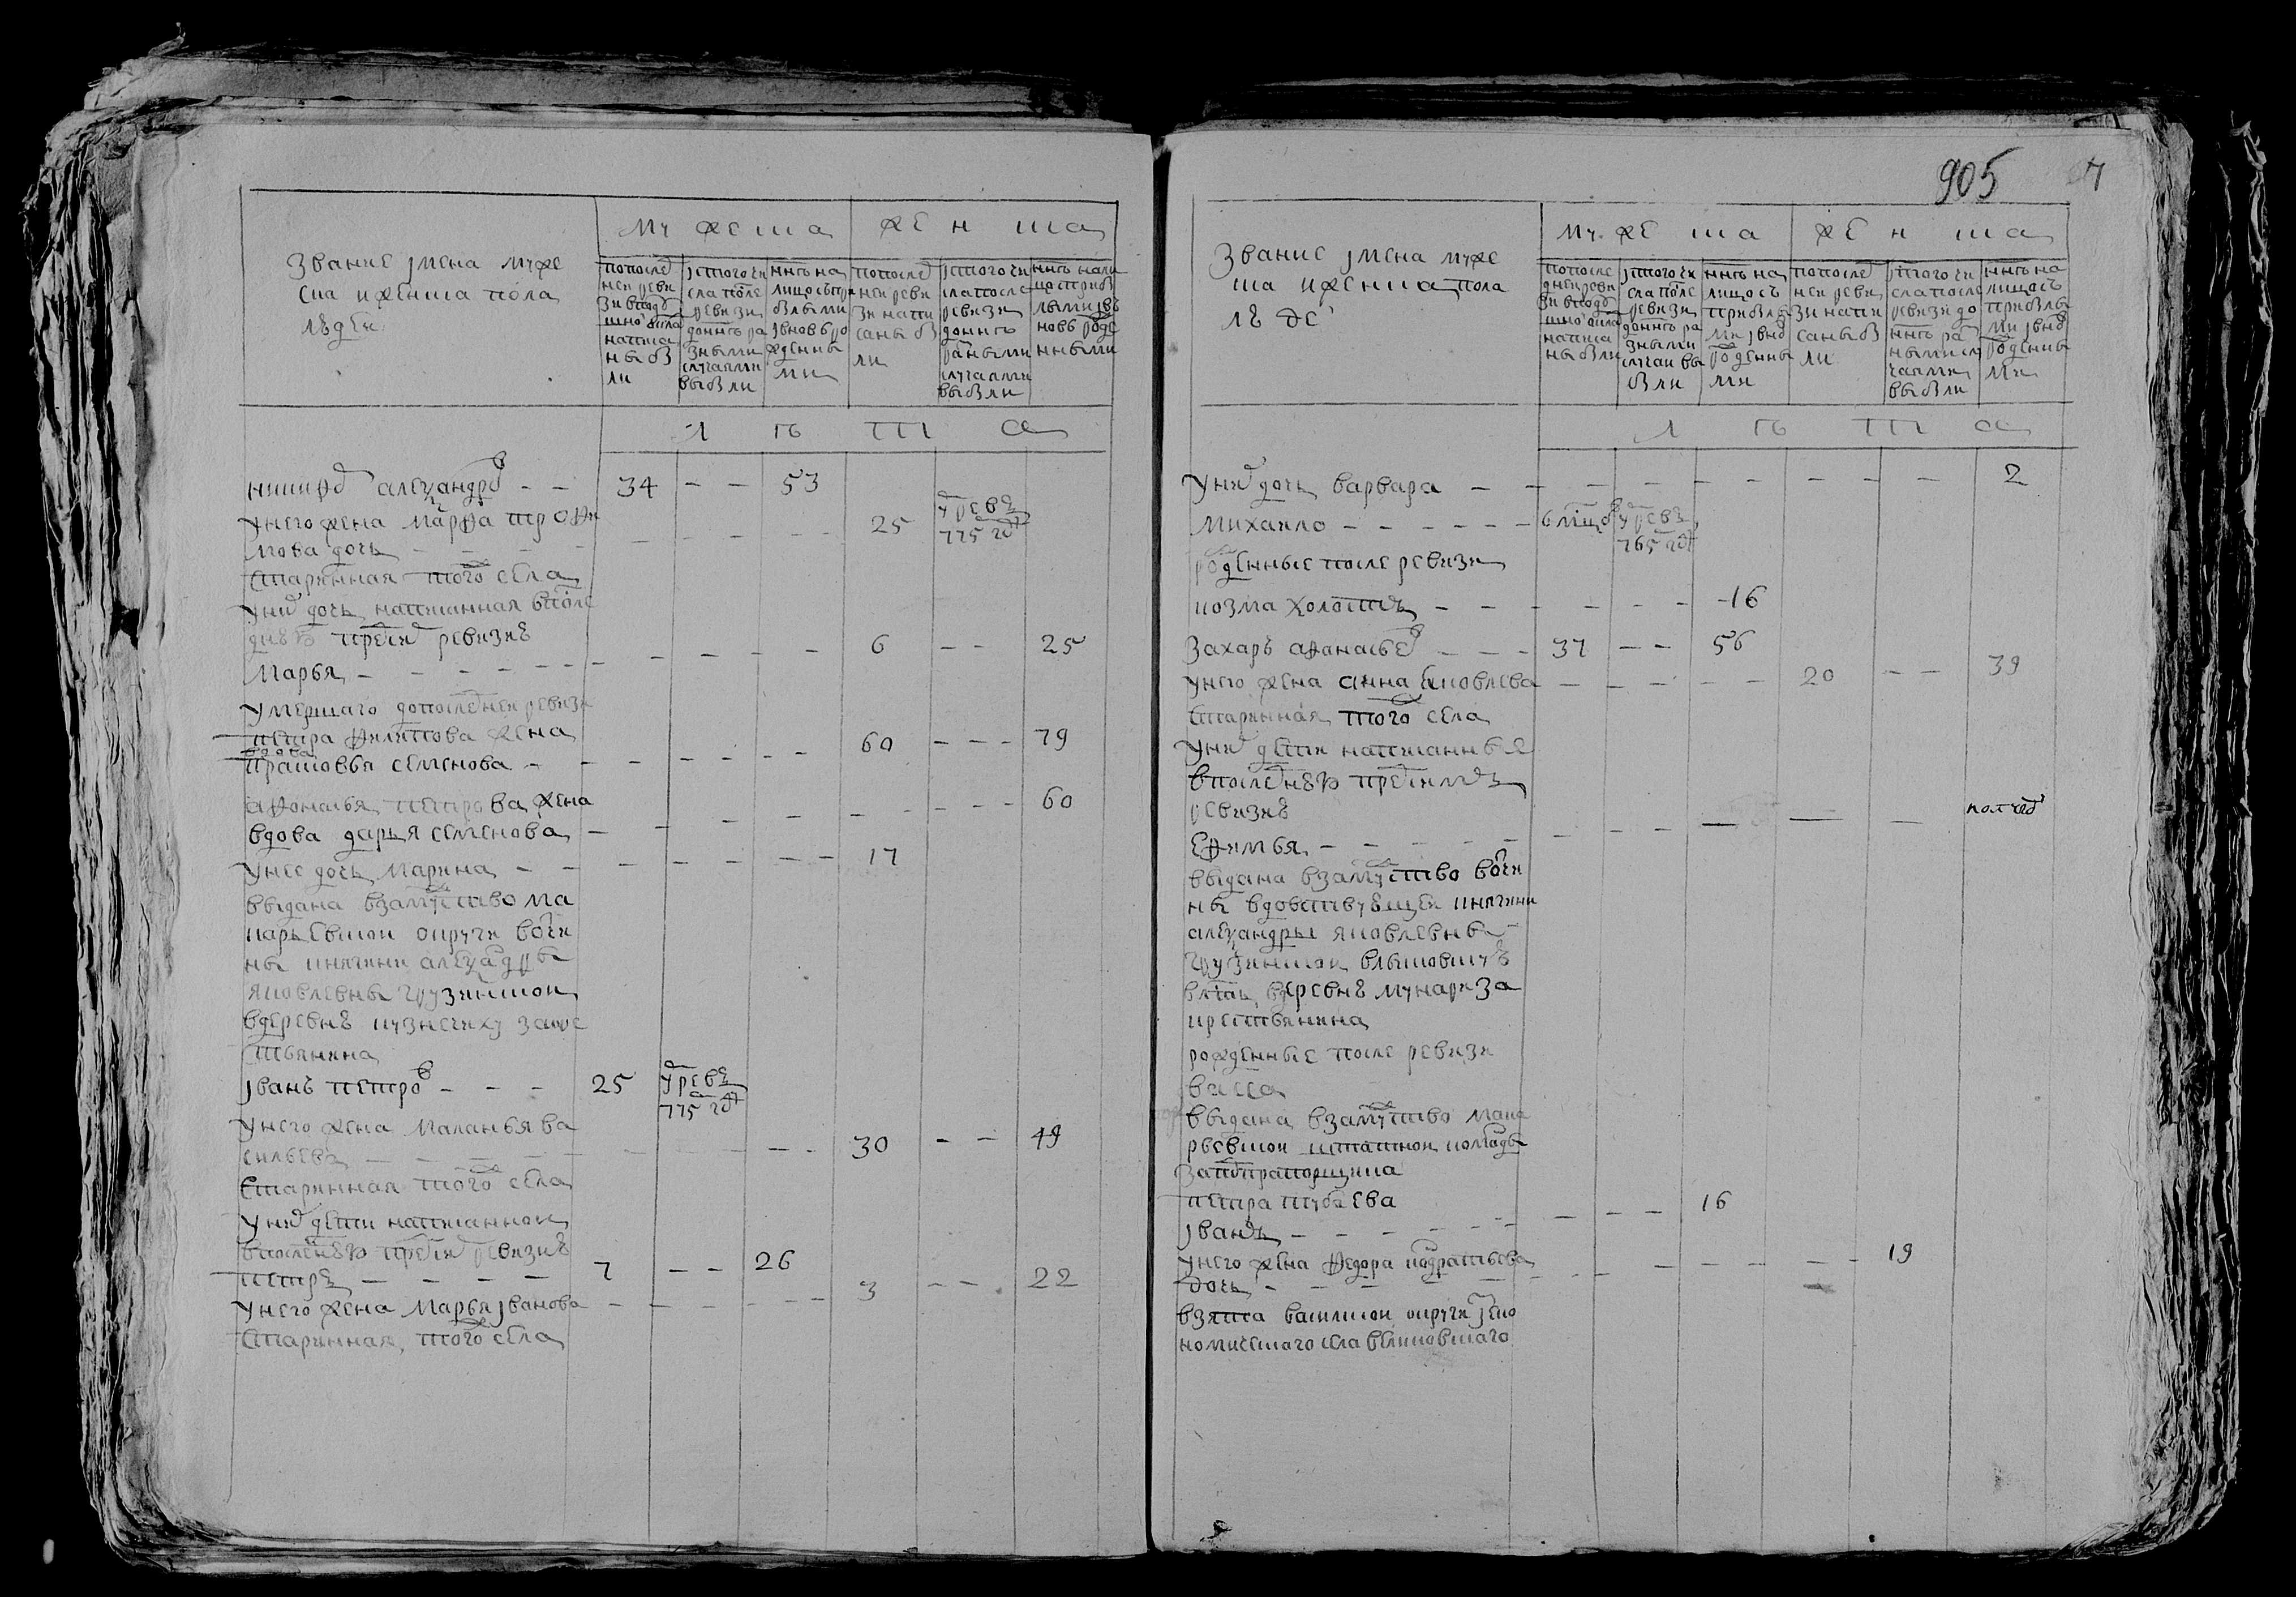 905
Звание јмена муже
ска и женска пола
людеи
муж еска
жен ска
попослед
неи реви
зи в 1763 году
написа
ны бы
ли
ис того чи
сла после
ревизи
до ныне ра
зными
случаями
выбыли
ныне на
лицо с при
былыми
и вновь ро
жденны
ми
попослед
неи реви
зи напи
саны бы
ли
ис того чи
сла после
ревизи
до ныне
разными
случаями
выбыли
ныне нали
цо с прибы
лыми и в
новь рожде
нными
л ѣ т а
никифор александров - - 34 - - 53
у него жена марфа трофи
мова дочь - - - 25 умре в 775 году
старинная того села
у них дочь написанная в после
днеи пред сим ревизие
марья - - - 6 - - 25
умершаго до последнеи ревизи
петра филипова жена
вдова
прасковья семенова - - - 60 - - - 79
афонасья петрова жена
вдова дарья семенова - - - 60
у нее дочь марина - - - 17
выдана в замуство ма
карьевскои округи вотчи
ны княгини александры
яковлевны грузинскои
в деревне кузнечиху за кре
стьянина
јванъ петров - - - 25 умре в 775 году
у него жена маланья ва
сильева - - - 30 - - 49
старинная того села
у них дети написаннои
в последнеи пред сим ревизие
петръ - - - - 7 - - 26
у него жена марья јванова - - - 3 - - 22
старинная, того села
Звание јмена муже
ска и женска пола
людеи
муже ска
жен ска
попосле
днеи реви
зи в 1763 году
написа
ны были
ис того чи
сла после
ревизи
до ныне ра
зными
случаи вы
были
ныне на
лицо съ
прибылы
ми и внов
рожденны
ми
попослед
неи реви
зи напи
саны бы
ли
ис того чи
сла после
ревизи до
ныне раз
ными слу
чаями
выбыли
ныне на
лицо съ
прибылы
ми и внов
рожденны
ми
л ѣ т а
у них дочь варвара - - - 2
михаило - - - - - - 6 мѣцов умре в 765 году
рожденные после ревизи
козма холостъ - - - - - - 16
захаръ афанасьев - - - 37 - - 56
у него жена анна яковлева - - - 20 - - 39
старинная того села
у них дети написанные
в последнеи пред симъ
ревизие
ефимья - - - полгод
выдана в замуство вотчи
ны вдовствующеи княгини
александры яковлевны
грузинскои в лысковскую
деревне мунари за
крестьянина
рожденные после ревизи
васса
выдана в замуство мака
рьевскои штатнои команды
за подпрапорщика
петра губаева
јванъ - - - 16
у него жена федора кондратьева
дочь - - - 19
взята васильскои округи јко
номическаго села великовскаго